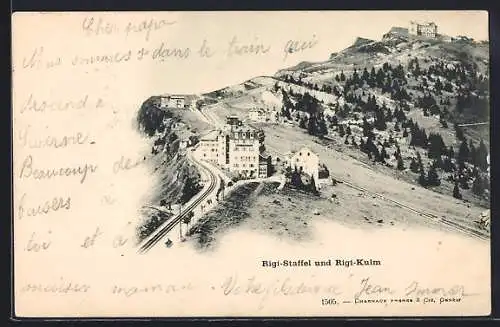 Cher papa
Nous sommes dans le train qui
descend à
Lucerne.
Beaucoup de
baisers à
toi et à
maman Jean
Rigi-Staffel und Rigi-Kulm
1505. — CHARNAUX FRÈRES & Cie, GENÈVE